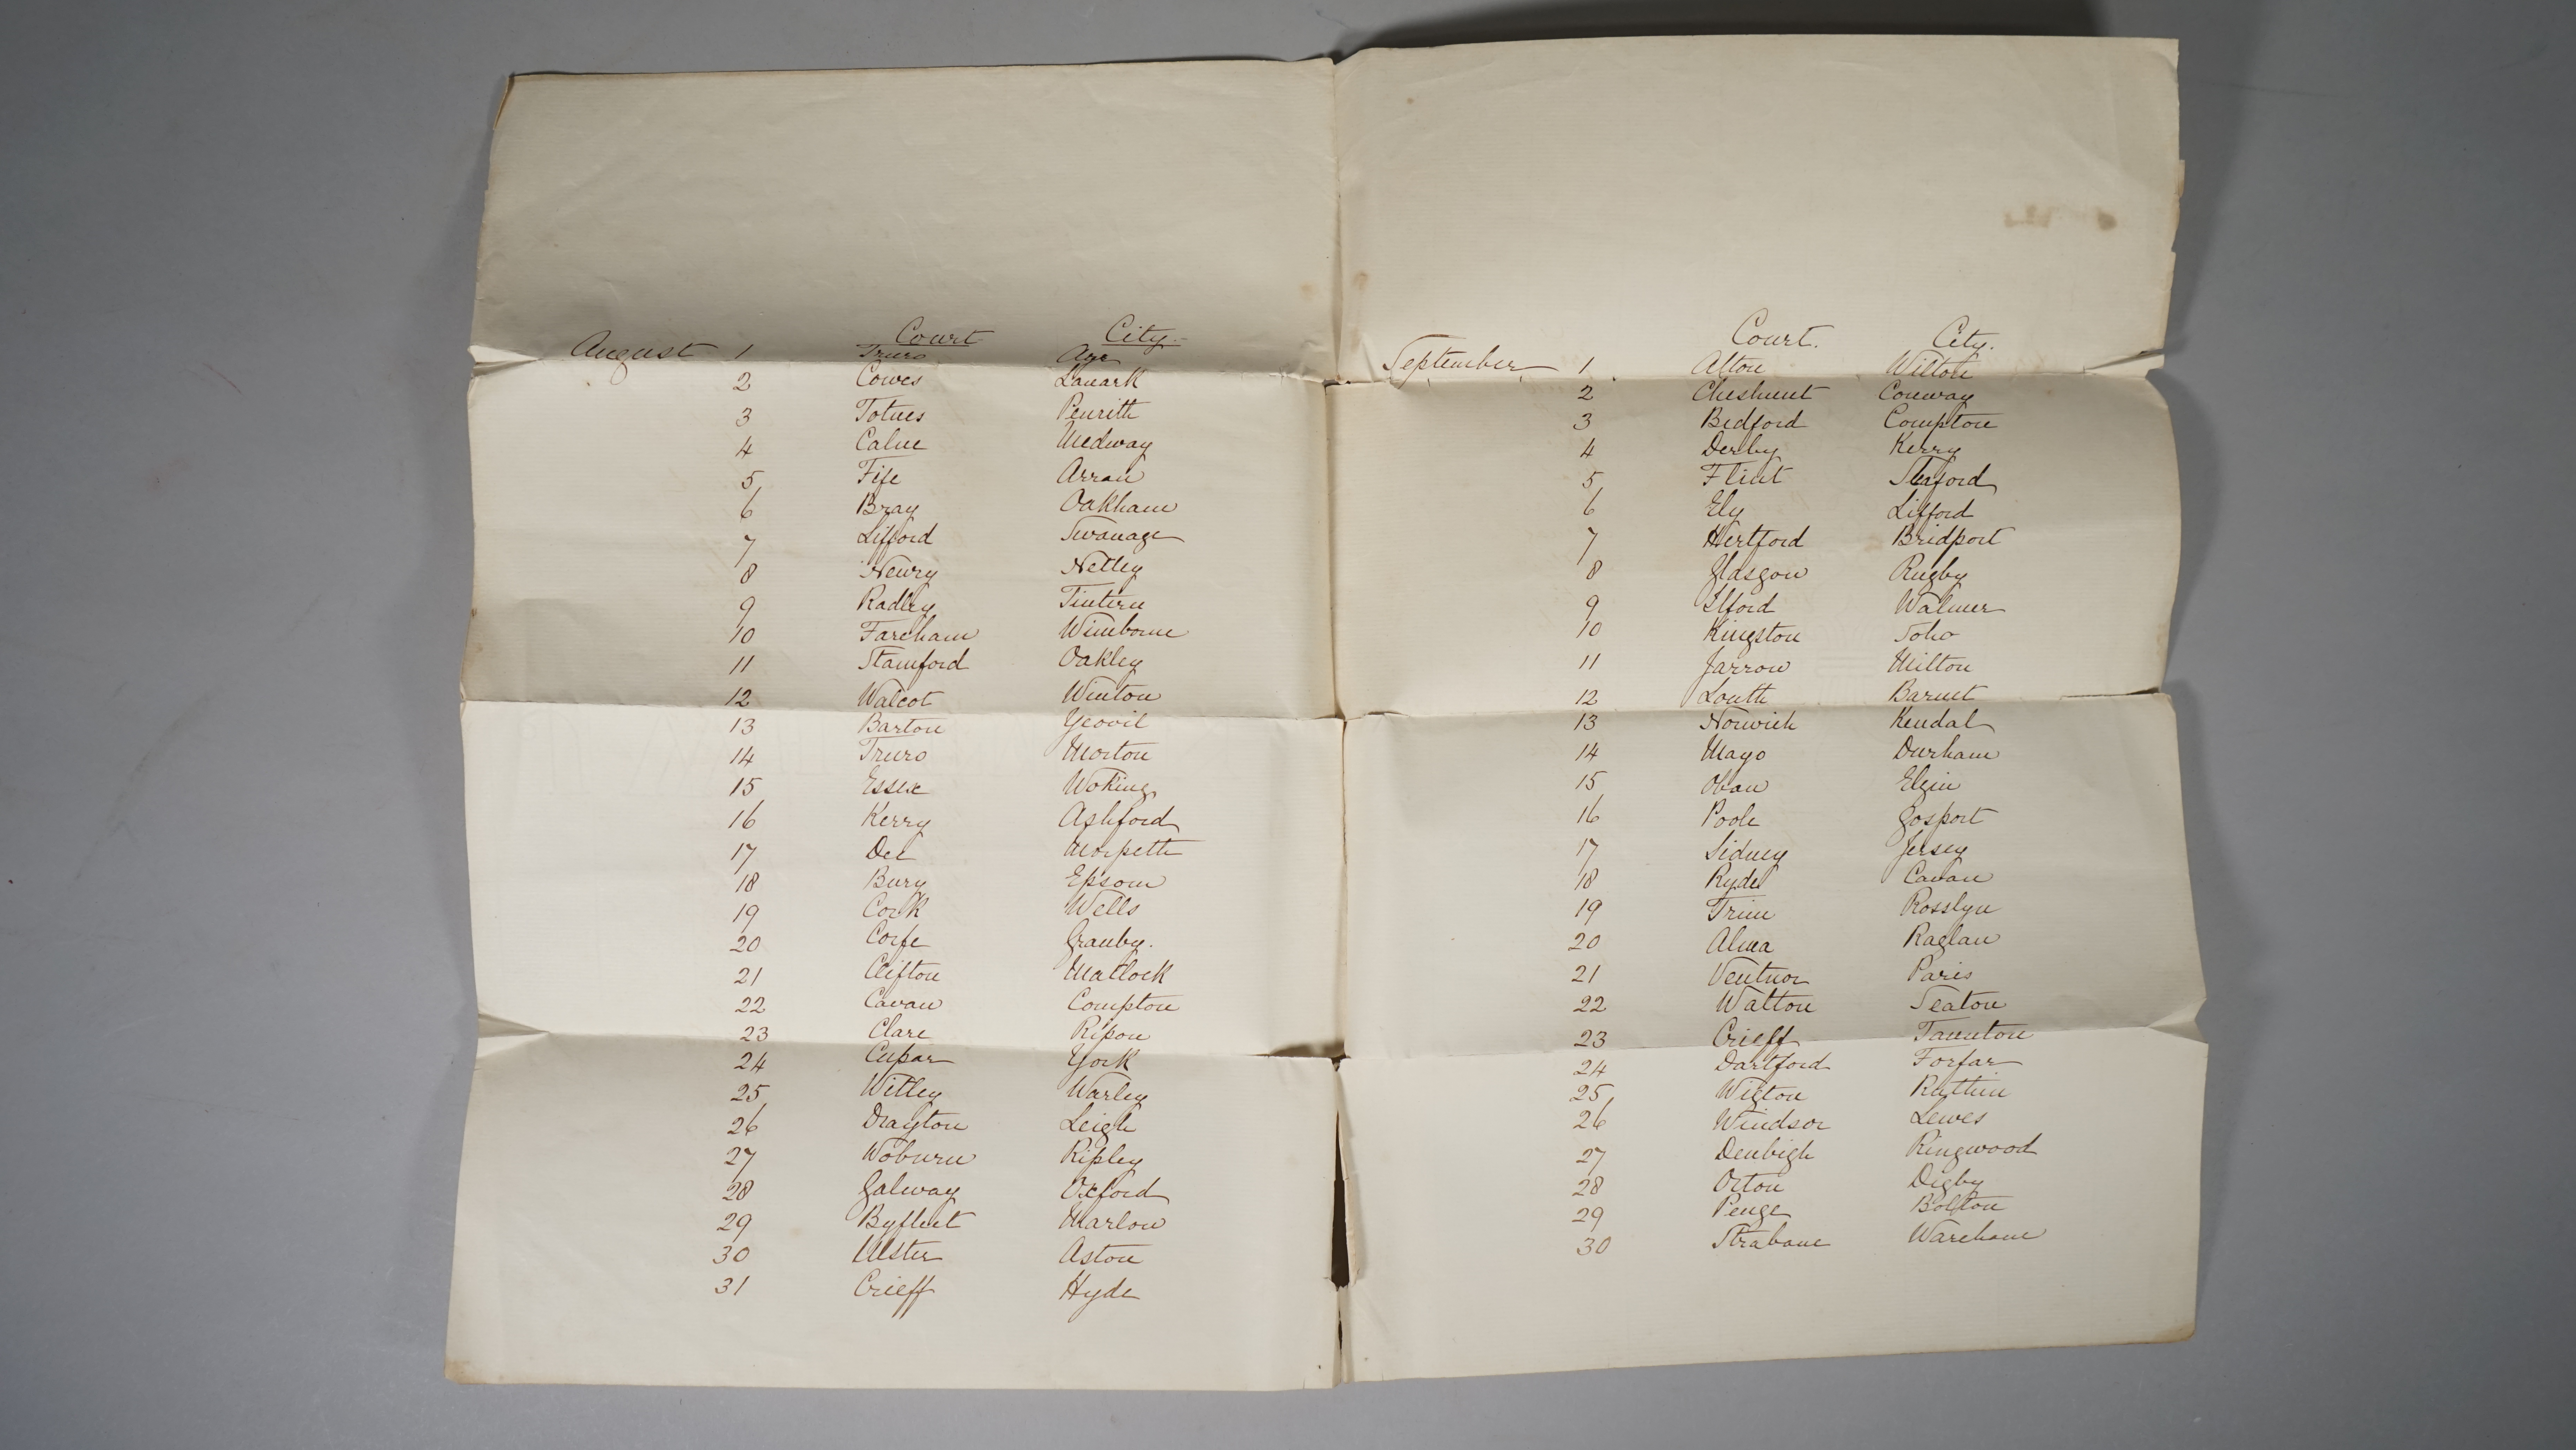 Court City.
August 1 Truro Ayr
2 Cowes Lanark
3 Totnes Penrith
4 Calne Medway
5 Fife Arran
6 Bray Oakham
7 Lifford Swanage
8 Newry Netley
9 Radley Tintern
10 Fareham Wimborne
11 Stamford Oakley
12 Walcot Winton
13 Barton Yeovil
14 Truro Morton
15 Essex Woking
16 Kerry Ashford
17 Dee Morpeth
18 Bury Epsom
19 Cork Wells
20 Corfe Granby.
21 Clifton Matlock
22 Cavan Compton
23 Clare Ripon
24 Cupar York
25 Witley Warley
26 Drayton Leigh
27 Woburn Ripley
28 Galway Oxford
29 Byfleet Marlow
30 Ulster Aston
31 Crieff Hyde
Court. City.
September 1 Alton Wilton
2 Cheshunt Conway
3 Bedford Compton
4 Derby Kerry
5 Flint Seaford
6 Ely Lifford
7 Hertford Bridport
8 Glasgow Rugby
9 Ilford Walmer
10 Kingston Soho
11 Jarrow Milton
12 Louth Barnet
13 Norwich Kendal
14 Mayo Durham
15 Oban Elgin
16 Poole Gosport
17 Sidney Jersey
18 Ryde Cavan
19 Trim Rosslyn
20 Alma Raglan
21 Ventnor Paris
22 Walton Seaton
23 Crieff Taunton
24 Dartford Forfar
25 Wigton Ruthin
26 Windsor Lewes
27 Denbigh Ringwood
28 Orton Digby
29 Penge Bolton
30 Strabane Wareham